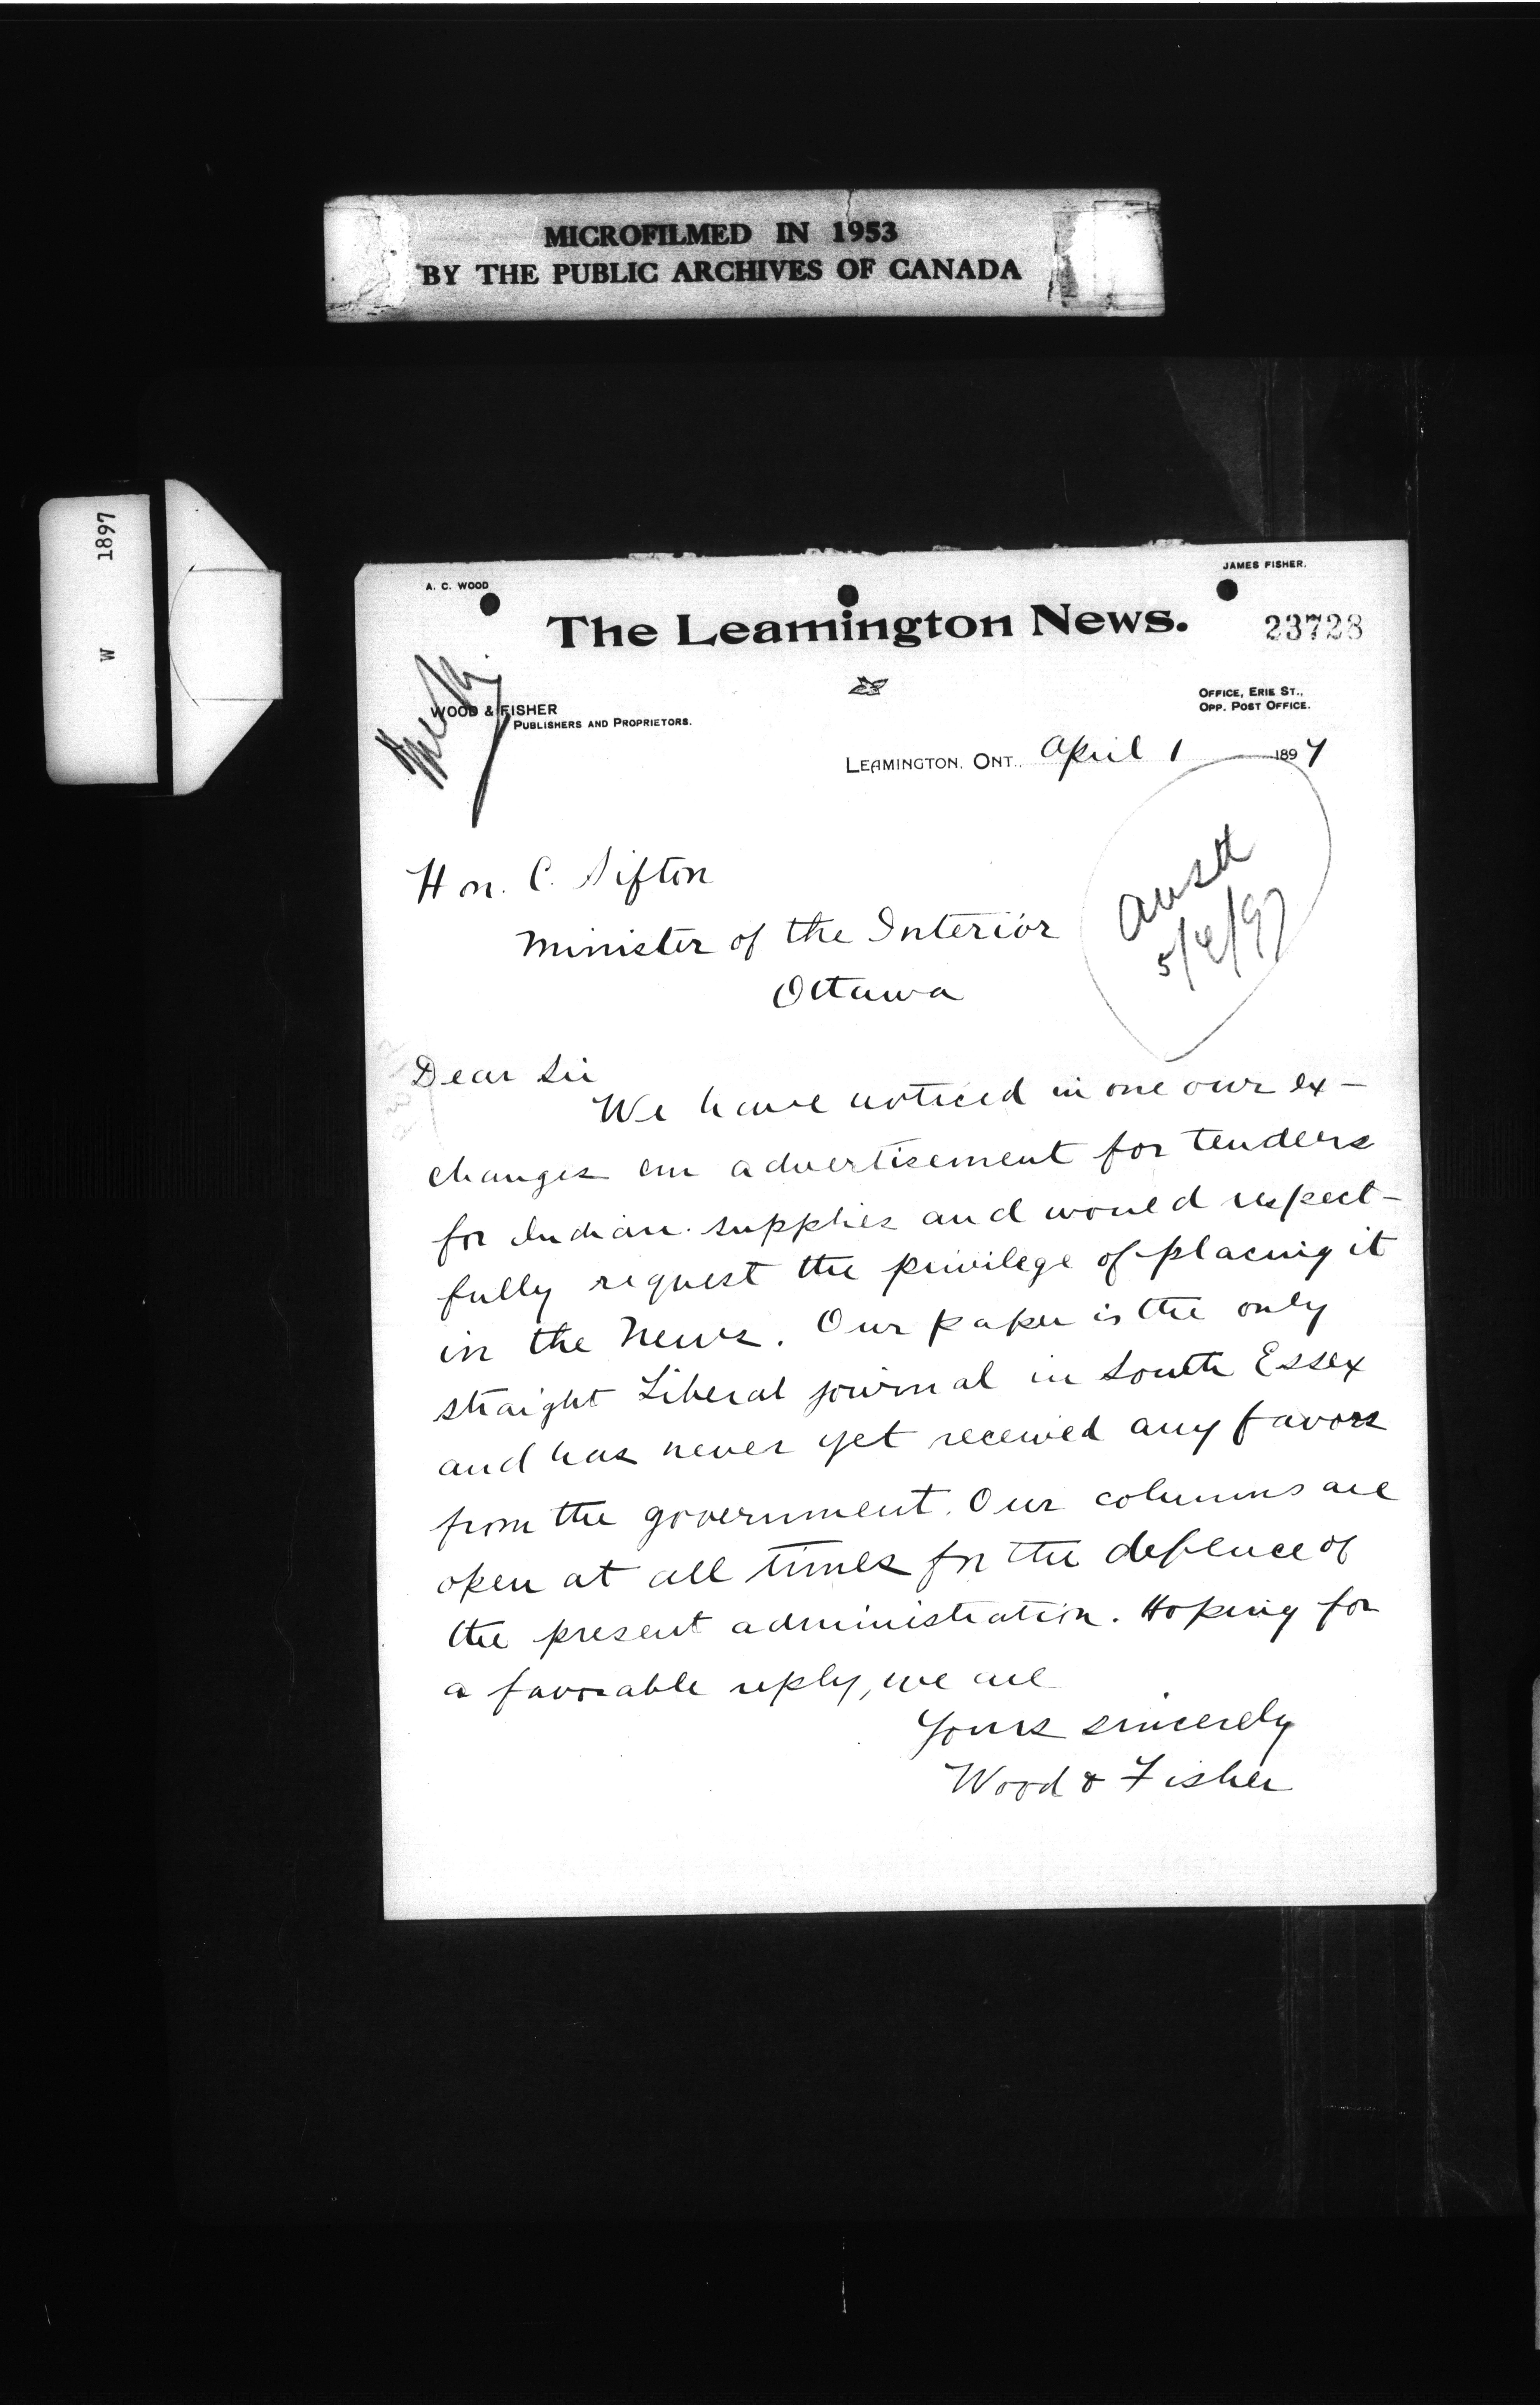 MICROFILMED IN 1953
BY THE PUBLIC ARCHIVES OF CANADA
W 1897
A. C. WOOD
JAMES FISHER.
The Leamington News.
23728
WOOD & FISHER
PUBLISHERS AND PROPRIETORS.
OFFICE, ERIE ST.,
OPP. POST OFFICE.
LEAMINGTON, ONT., April 1 1897
Hon. C. Sifton
Minister of the Interior
Ottawa
5/4/97
Dear Sir
We have noticed in one our ex-
changes an advertisement for tenders
for Indian supplies and would respect-
fully request the privilege of placing it
in the News. Our paper is the only
straight Liberal journal in South Essex
and has never yet received any favors
from the government. Our columns are
open at all times for the defence of
the present administration. Hoping for
a favorable reply, we are
Yours sincerely
Wood & Fisher